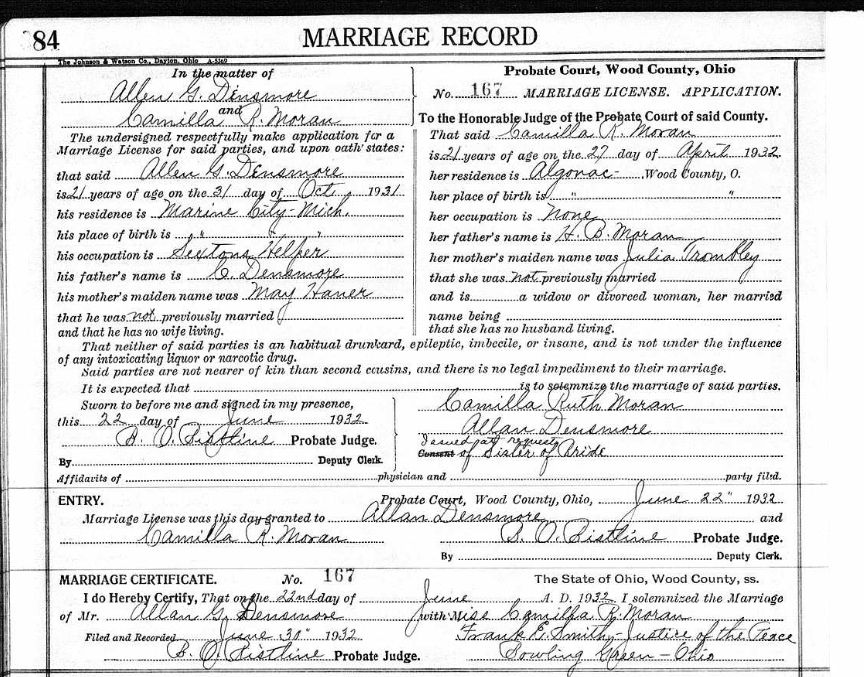 84 MARRIAGE RECORD
The Johnson & Watson Co., Dayton, Ohio A-5369
In the matter of
Allen G. Densmore
and
Camilla R. Moran
The undersigned respectfully make application for a
Marriage License for said parties, and upon oath states:
that said Allen G. Densmore
is 21 years of age on the 31 day of Oct. 1931
his residence is Marine City - Mich.
his place of birth is " " "
his occupation is Sextons Helper
his father's name is C. Densmore
his mother's maiden name was May Haner
that he was not previously married
and that he has no wife living.
Probate Court, Wood County, Ohio
No. 167 MARRIAGE LICENSE. APPLICATION.
To the Honorable Judge of the Probate Court of said County.
That said Camilla R. Moran
is 21 years of age on the 27 day of April 1932
her residence is Algonac - Wood County, O.
her place of birth is " "
her occupation is None
her father's name is H. B. Moran
her mother's maiden name was Julia Trombley
that she was not previously married
and is a widow or divorced woman, her married
name being
that she has no husband living.
That neither of said parties is an habitual drunkard, epileptic, imbecile, or insane, and is not under the influence
of any intoxicating liquor or narcotic drug.
Said parties are not nearer of kin than second cousins, and there is no legal impediment to their marriage.
It is expected that is to solemnize the marriage of said parties.
Sworn to before me and signed in my presence,
this 22 day of June 1932
B. O. Bistline Probate Judge.
By Deputy Clerk.
Camilla Ruth Moran
Allan Densmore
Issued at request
Consent of Sister of Bride
Affidavits of physician and party filed.
ENTRY. Probate Court, Wood County, Ohio, June 22" 1932
Marriage License was this day granted to Allan Densmore and
Camilla R. Moran B. O. Bistline Probate Judge.
By Deputy Clerk.
MARRIAGE CERTIFICATE. No. 167 The State of Ohio, Wood County, ss.
I do Hereby Certify, That on the 22nd day of June A. D. 1932 I solemnized the Marriage
of Mr. Allan G. Densmore with Miss Camilla R. Moran
Filed and Recorded June 30" 1932 Frank E. Smith - Justice of the Peace
B. O. Bistline Probate Judge. Bowling Green - Ohio